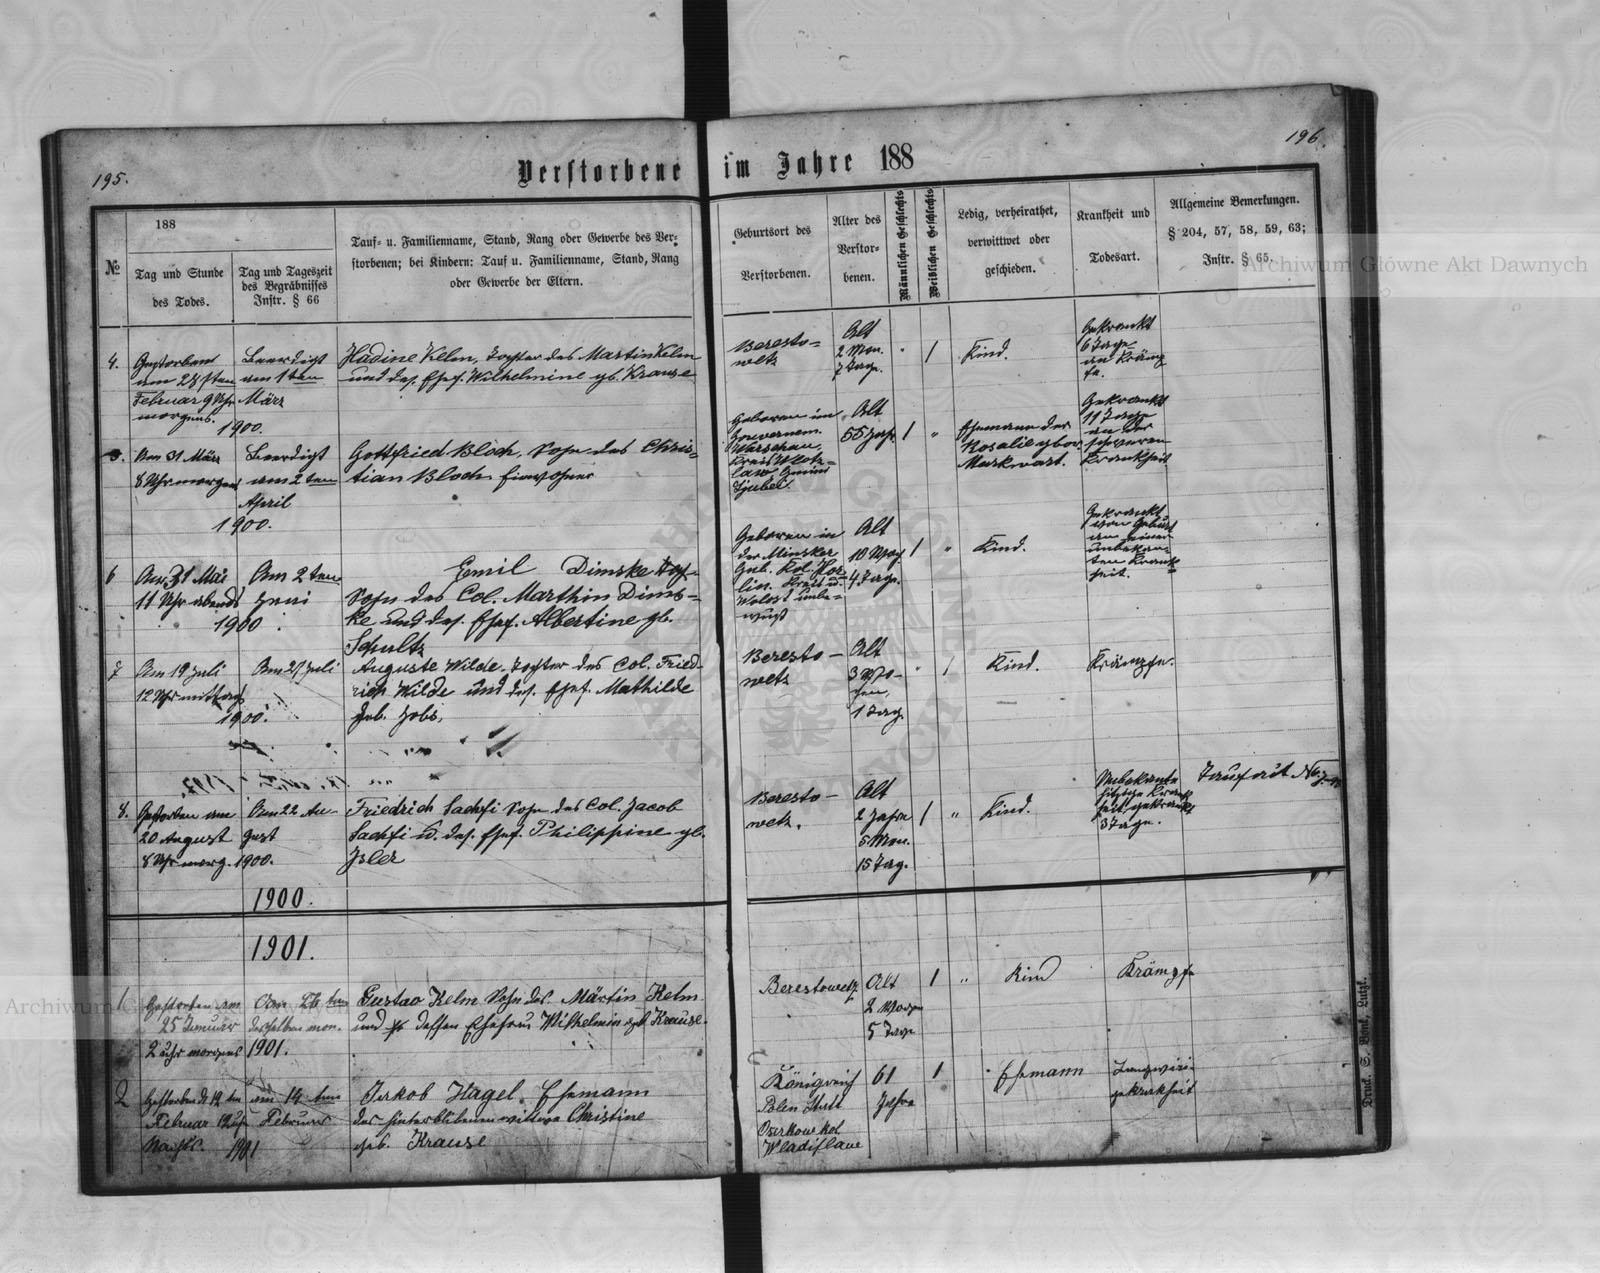 195.
196.
Verstorbene im Jahre 188
188
№
Tag und Stunde
des Todes.
Tag und Tageszeit
des Begräbnisses
Instr. § 66
Tauf- u. Familienname, Stand, Rang oder Gewerbe des Ver-
storbenen; bei Kindern: Tauf u. Familienname, Stand, Rang
oder Gewerbe der Eltern.
Geburtsort des
Verstorbenen.
Alter des
Verstor-
benen.
Männlichen Geschlechts
Weiblichen Geschlechts
Ledig, verheirathet,
verwittwet oder
geschieden.
Krankheit und
Todesart.
Allgemeine Bemerkungen.
§ 204, 57, 58, 59, 63;
Instr. § 65.
4.
Gestorben
am 28sten
Februar 9 Uhr
morgens.
Beerdigt
am 1ten
März
1900.
Kelm, Tochter des Martin Kelm
und des. Ehef. Wilhelmine gb. Krause
Beresto-
wetz
Alt
2 Mon.
7 Tage.
1
Kind.
Gekrankt
6 Tage
an Krämp
fe.
5.
Am 31 März
8 Uhr morgens
Beerdigt
am 2ten
April
1900.
Gottfried Bloch, Sohn des Chris-
tian Bloch Einwohner
Geboren im
Gouvernem.
Warschau
Kreis Wlotz-
law Gmind
Alt
55 Jahr
1
"
Ehemann der
Rosalie gbor
Markwart.
Gekrankt
11 Tage
an der
schweren
Krankheit
6
Am 31 Mai
11 Uhr abends
Am 2ten
Juni
1900
Emil Dimske
Sohn des Col. Marthin Dims-
ke und des. Ehef. Albertine gb.
Schultz
Geboren in
der Minsker
Gub. Kol. Hor-
lin. Kreis u.
Wolost unbe-
wust
Alt
10 Woch.
4 Tage.
1
"
Kind.
Gekrankt
von Geburt
an seiner
unbekan-
ten Krank-
heit.
7
Am 19 Juli
12 Uhr mittags
Am 21 Juli
1900.
Auguste Wilde, Tochter des Col. Fried-
rich Wilde und des. Ehef. Mathilde
Geb. Jobs,
Beresto-
wetz
Alt
3 Wo-
chen,
1 Tag.
"
1
Kind.
Krämpfe.
8.
Gestorben am
20 August
8 Uhr morg.
Am 22 Au-
gust
1900.
Friedrich Sachsi Sohn des Col. Jacob
Sachsi u. des. Ehef. Philippine gb.
Isler
Beresto-
wetz.
Alt
2 Jahre
5 Mon.
15 Tag.
1
"
Kind.
Unbekante
hitzige Krank
heit gekrankt
3 Tage.
1900.
1901.
1
Gestorben am
25 Januar
2 uhr morgens
Am
desselben mon.
1901.
Gustav Kelm Sohn des Märtin Kelm
und dessen Ehefrau Wilhelmin geb Krause.
Berestowetz.
Alt
2 Woch
5 Tage
1
"
Kind
Krämpfe
2
Gestorben d. 12 ten
Februar
Nachts.
am 14 ten
Februar
1901
Jakob Hagel. Ehemann
der hinterblibenen wittwe Christine
geb. Krause
Königreich
Polen Statt
Oserkow kol
Wladislaw
61
Jahre
1
Ehemann
Langwiri-
ge krankheit
Druck. S. Bont, Lutzk.
Archiwum Główne Akt Dawnych